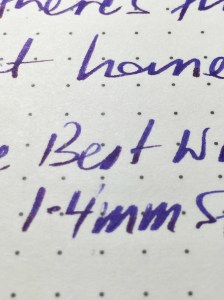 there's
t hone
Best Wi
1.4mm S